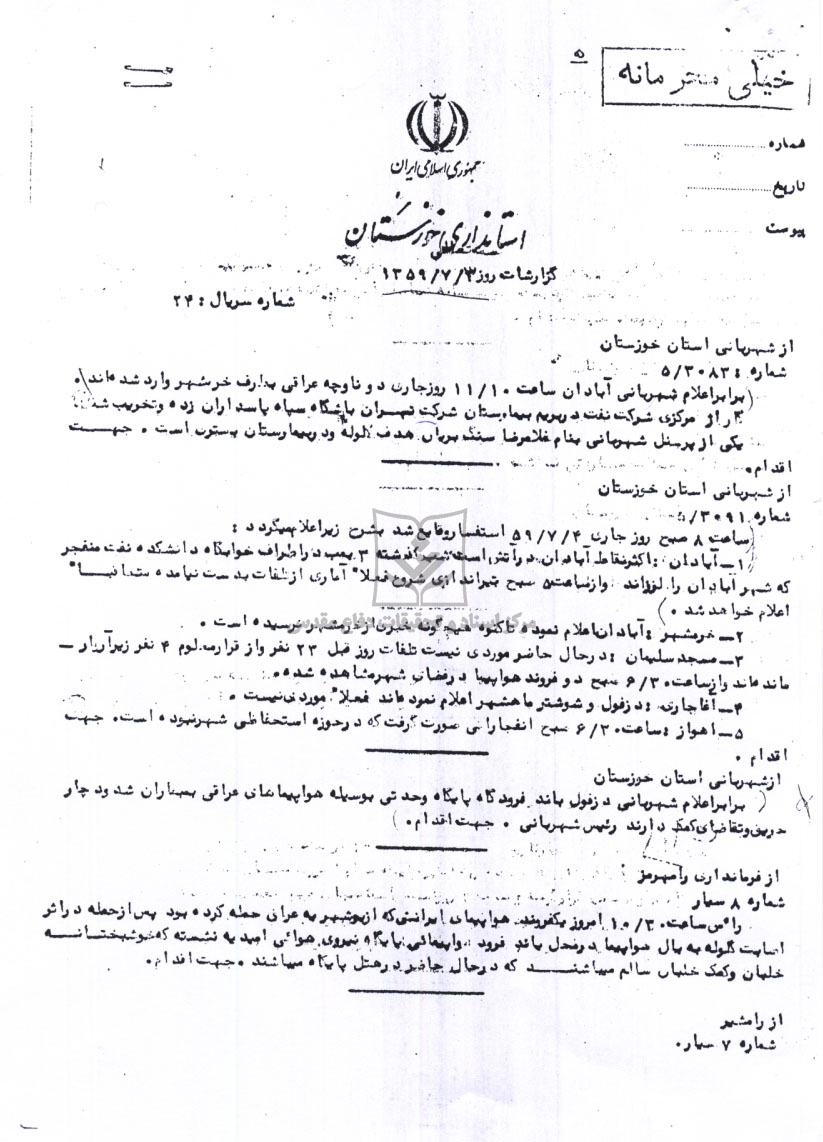 خیلی محرمانه
۵
شماره
تاریخ
پیوست
جمهوری اسلامی ایران
استانداری خوزستان
گزارشات روز ۱۳۵۹/۷/۳
شماره سریال : ۲۴
از شهربانی استان خوزستان
شماره : ۵/۳۰۸۳
برابر اعلام شهربانی آبادان ساعت ۱۱/۱۰ روز جاری دو ناوچه عراقی بطرف خرمشهر وارد شده‌اند.
مرکزی شرکت نفت بیمارستان شرکت باشگاه سپاه پاسداران زده و تخریب شد
یکی از پرسنل شهربانی بنام غلامرضا سنگ بریان هدف گلوله و در بیمارستان بستری است . جهت
اقدام.
از شهربانی استان خوزستان
شماره ۵/۳۰۹۱
ساعت ۸ صبح روز جاری ۵۹/۷/۴ استفسار وقایع شد بشرح زیر اعلام میگردد :
۱ـ آبادان : اکثر نقاط آبادان در آتش است شب گذشته ۳ بمب در اطراف خوابگاه دانشکده نفت منفجر
که شهر آبادان را لرزاند و از ساعت ۵ صبح تیراندازی شروع فعلا" آماری از تلفات بدست نیامده متعاقبا"
اعلام خواهد شد .
مرکز اسناد و تحقیقات دفاع مقدس
۲ـ خرمشهر : آبادان اعلام نموده تاکنون هیچگونه خبری از خرمشهر نرسیده است .
۳ـ مسجدسلیمان : در حال حاضر موردی نیست تلفات روز قبل ۲۳ نفر و از قرار معلوم ۴ نفر زیر آوار ـ
مانده‌اند و از ساعت ۶/۳۰ صبح دو فروند هواپیما در فضای شهر مشاهده شده .
۴ـ آغاجاری : دزفول و شوشتر ماهشهر اعلام نموده‌اند فعلا" موردی نیست .
۵ـ اهواز : ساعت ۶/۲۰ صبح انفجاراتی صورت گرفت که در حوزه استحفاظی شهر نبوده است. جهت
اقدام .
از شهربانی استان خوزستان
برابر اعلام شهربانی دزفول باند فرودگاه پایگاه وحدتی بوسیله هواپیماهای عراقی بمباران شد و دچار
حریق و تقاضای کمک دارند رئیس شهربانی . جهت اقدام.
از فرمانداری رامهرمز
شماره ۸ سیار
راس ساعت ۱۰/۳۰ امروز یکفروند هواپیمای ایرانی که از بوشهر به عراق حمله کرده بود پس از حمله در اثر
اصابت گلوله به بال هواپیما در محل باند فرود پایگاه نیروی هوائی امیدیه نشسته که خوشبختانه
خلبان و کمک خلبان سالم میباشند که در حال حاضر در هتل پایگاه میباشند . جهت اقدام.
از رامشیر
شماره ۷ سیار.